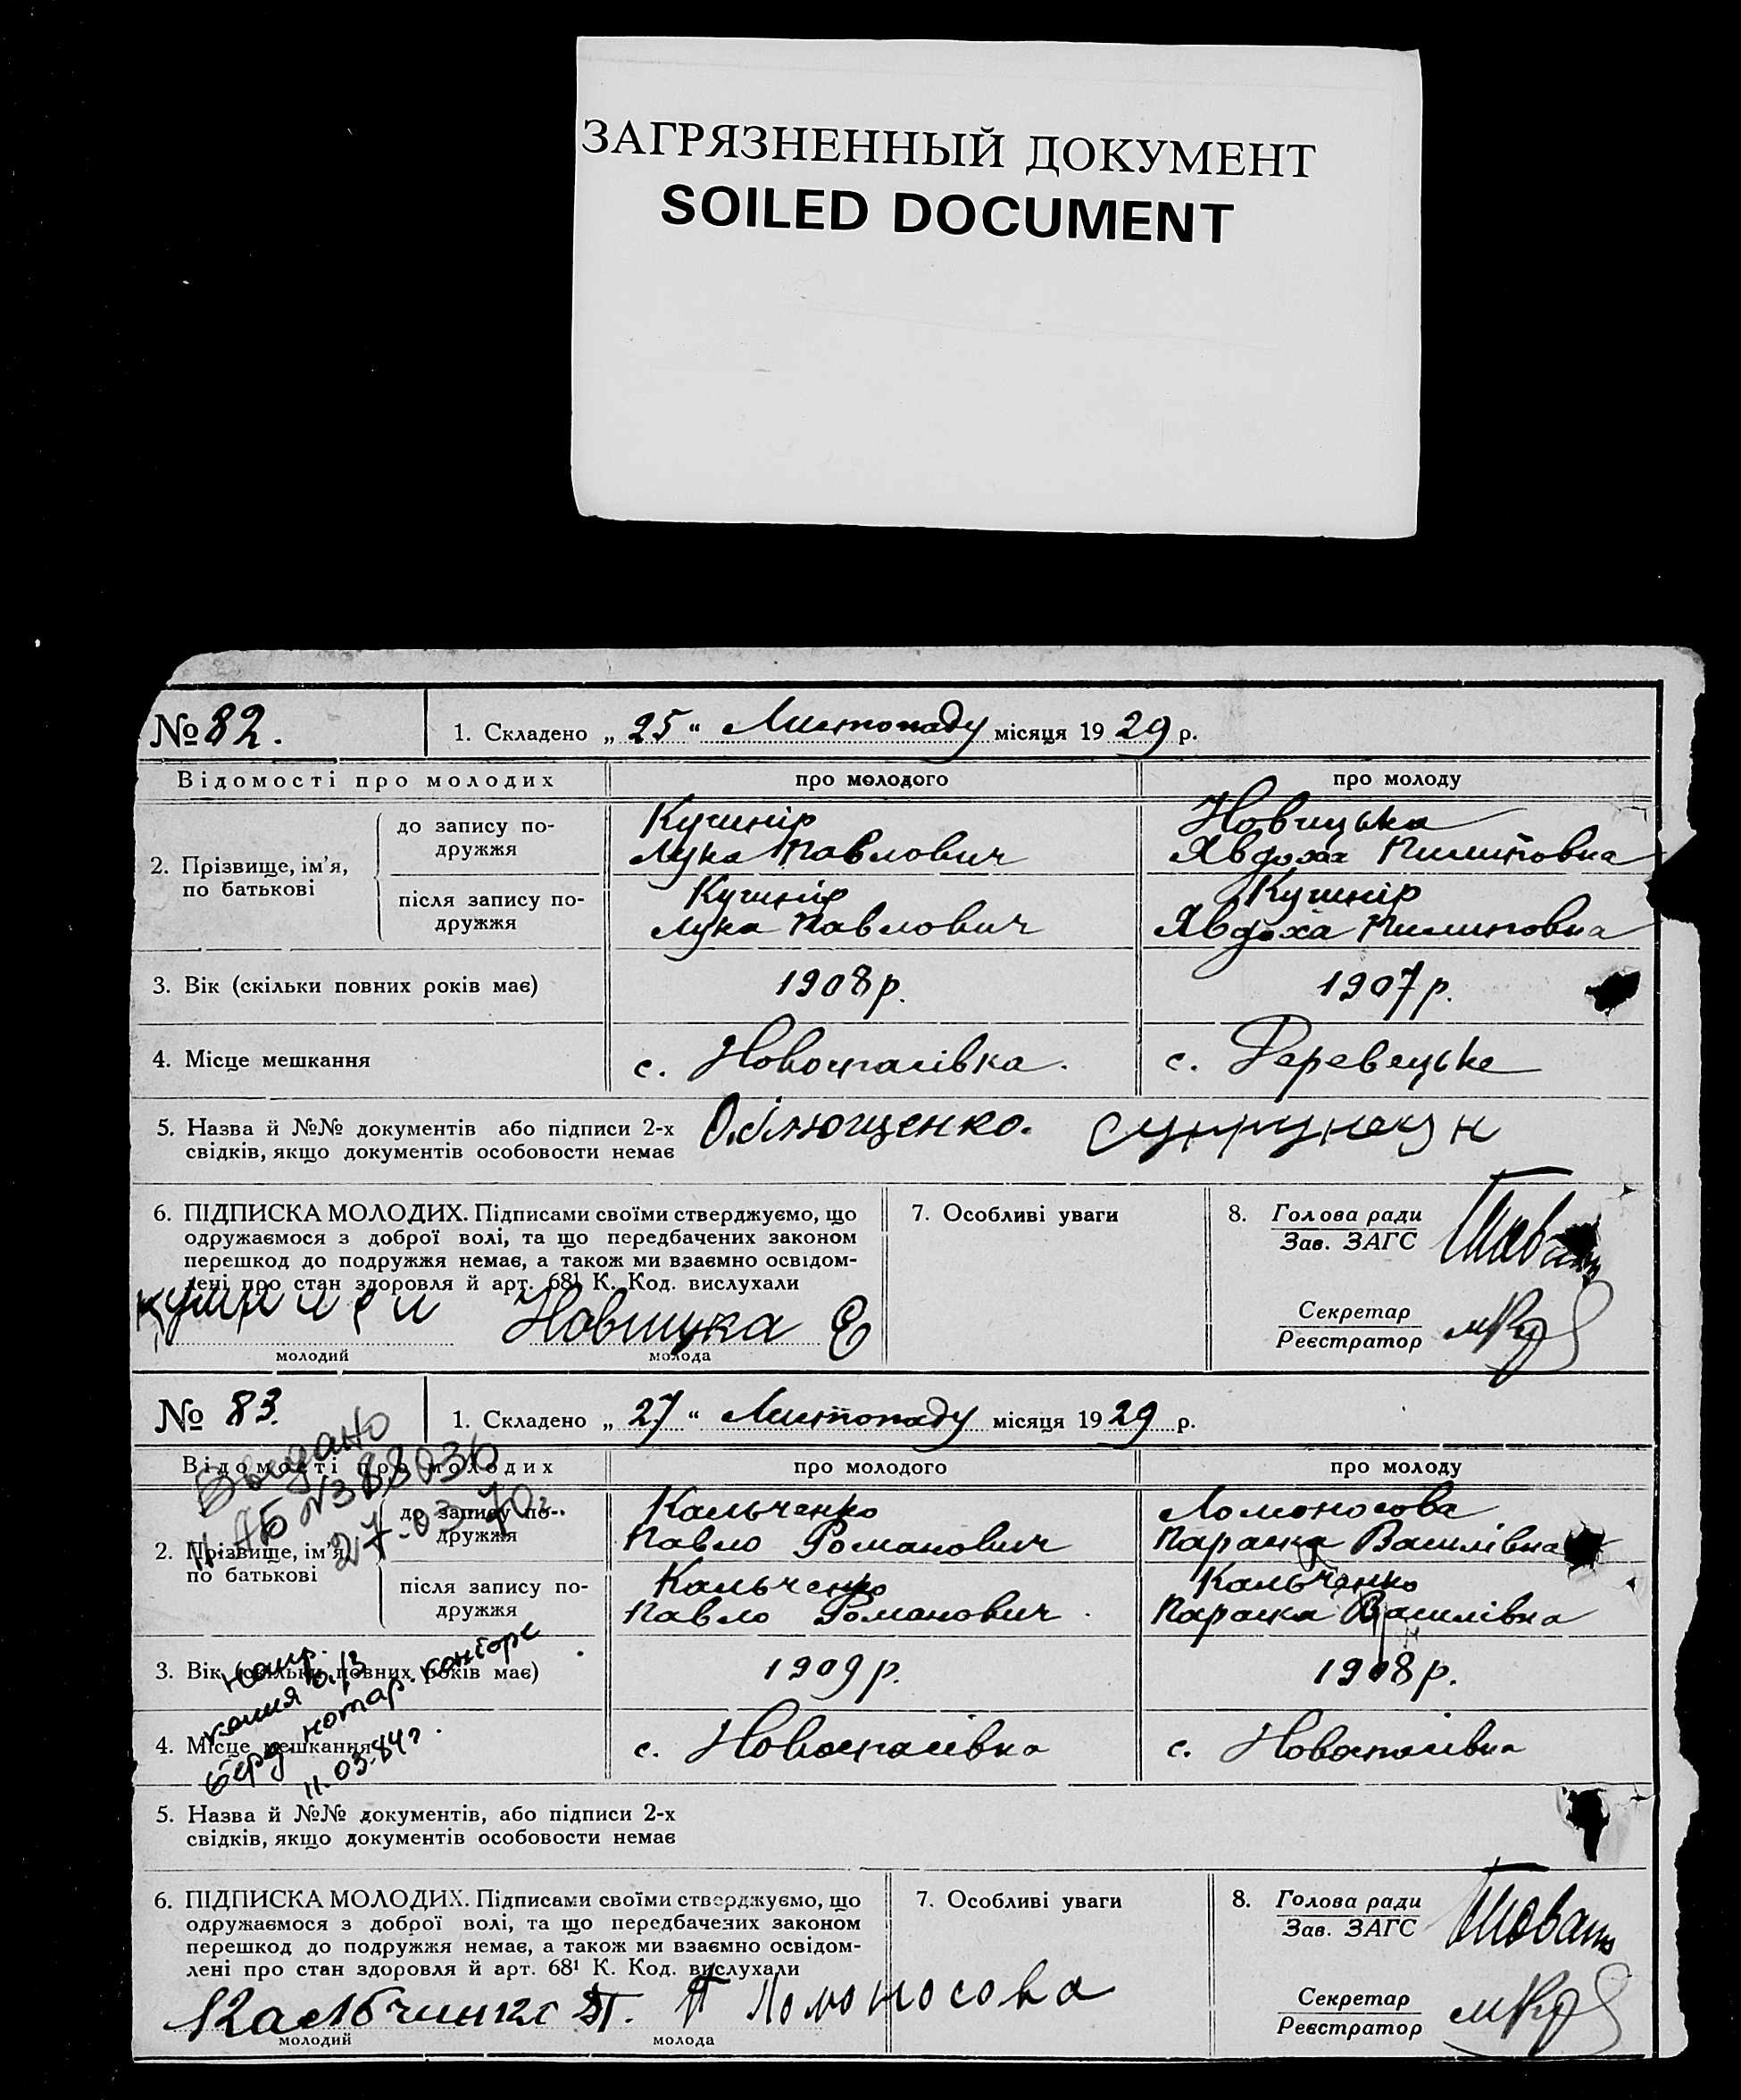 ЗАГРЯЗНЕННЫЙ ДОКУМЕНТ
SOILED DOCUMENT
№ 82.
1. Складено „ 25 “ Листопаду місяця 1929 р.
Відомості про молодих
про молодого
про молоду
2. Прізвище, ім’я, по батькові
до запису по-
дружжя
Кушнір
Лука Павлович
Новицька
Явдоха Пилиповна
після запису по-
дружжя
Кушнір
Лука Павлович
Кушнір
Явдоха Пилиповна
3. Вік (скільки повних років має)
1908 р.
1907 р.
4. Місце мешкання
с. Новоспасівка.
с. Деревецьке
5. Назва й №№ документів або підписи 2-х
свідків, якщо документів особовости немає
6. ПІДПИСКА МОЛОДИХ. Підписами своїми стверджуємо, що
одружаємося з доброї волі, та що передбачених законом
перешкод до подружжя немає, а також ми взаємно освідом-
лені про стан здоровля й арт. 68¹ К. Код. вислухали
Новицка Є
молодий
молода
7. Особливі уваги
8. Голова ради
Зав. ЗАГС
Секретар
Реєстратор
№ 83.
1. Складено „ 27 “ Листопаду місяця 1929 р.
Выдано
II-АБ №388036
27-03-70г.
Відомості про молодих
про молодого
про молоду
2. Прізвище, ім’я,
по батькові
до запису по-
дружжя
Кальченко
Павло Романович
Ломоносова
Параска Василівна
після запису по-
дружжя
Кальченко
Павло Романович
Кальченко
Параска Василівна
3. Вік (скільки повних років має)
1909 р.
1908 р.
4. Місце мешкання
с. Новоспасівка
с. Новоспасівка
нотар. конторе
11.03.84г.
5. Назва й №№ документів, або підписи 2-х
свідків, якщо документів особовости немає
6. ПІДПИСКА МОЛОДИХ. Підписами своїми стверджуємо, що
одружаємося з доброї волі, та що передбачених законом
перешкод до подружжя немає, а також ми взаємно освідом-
лені про стан здоровля й арт. 68¹ К. Код. вислухали
П Ломоносова
молодий
молода
7. Особливі уваги
8. Голова ради
Зав. ЗАГС
Секретар
Реєстратор